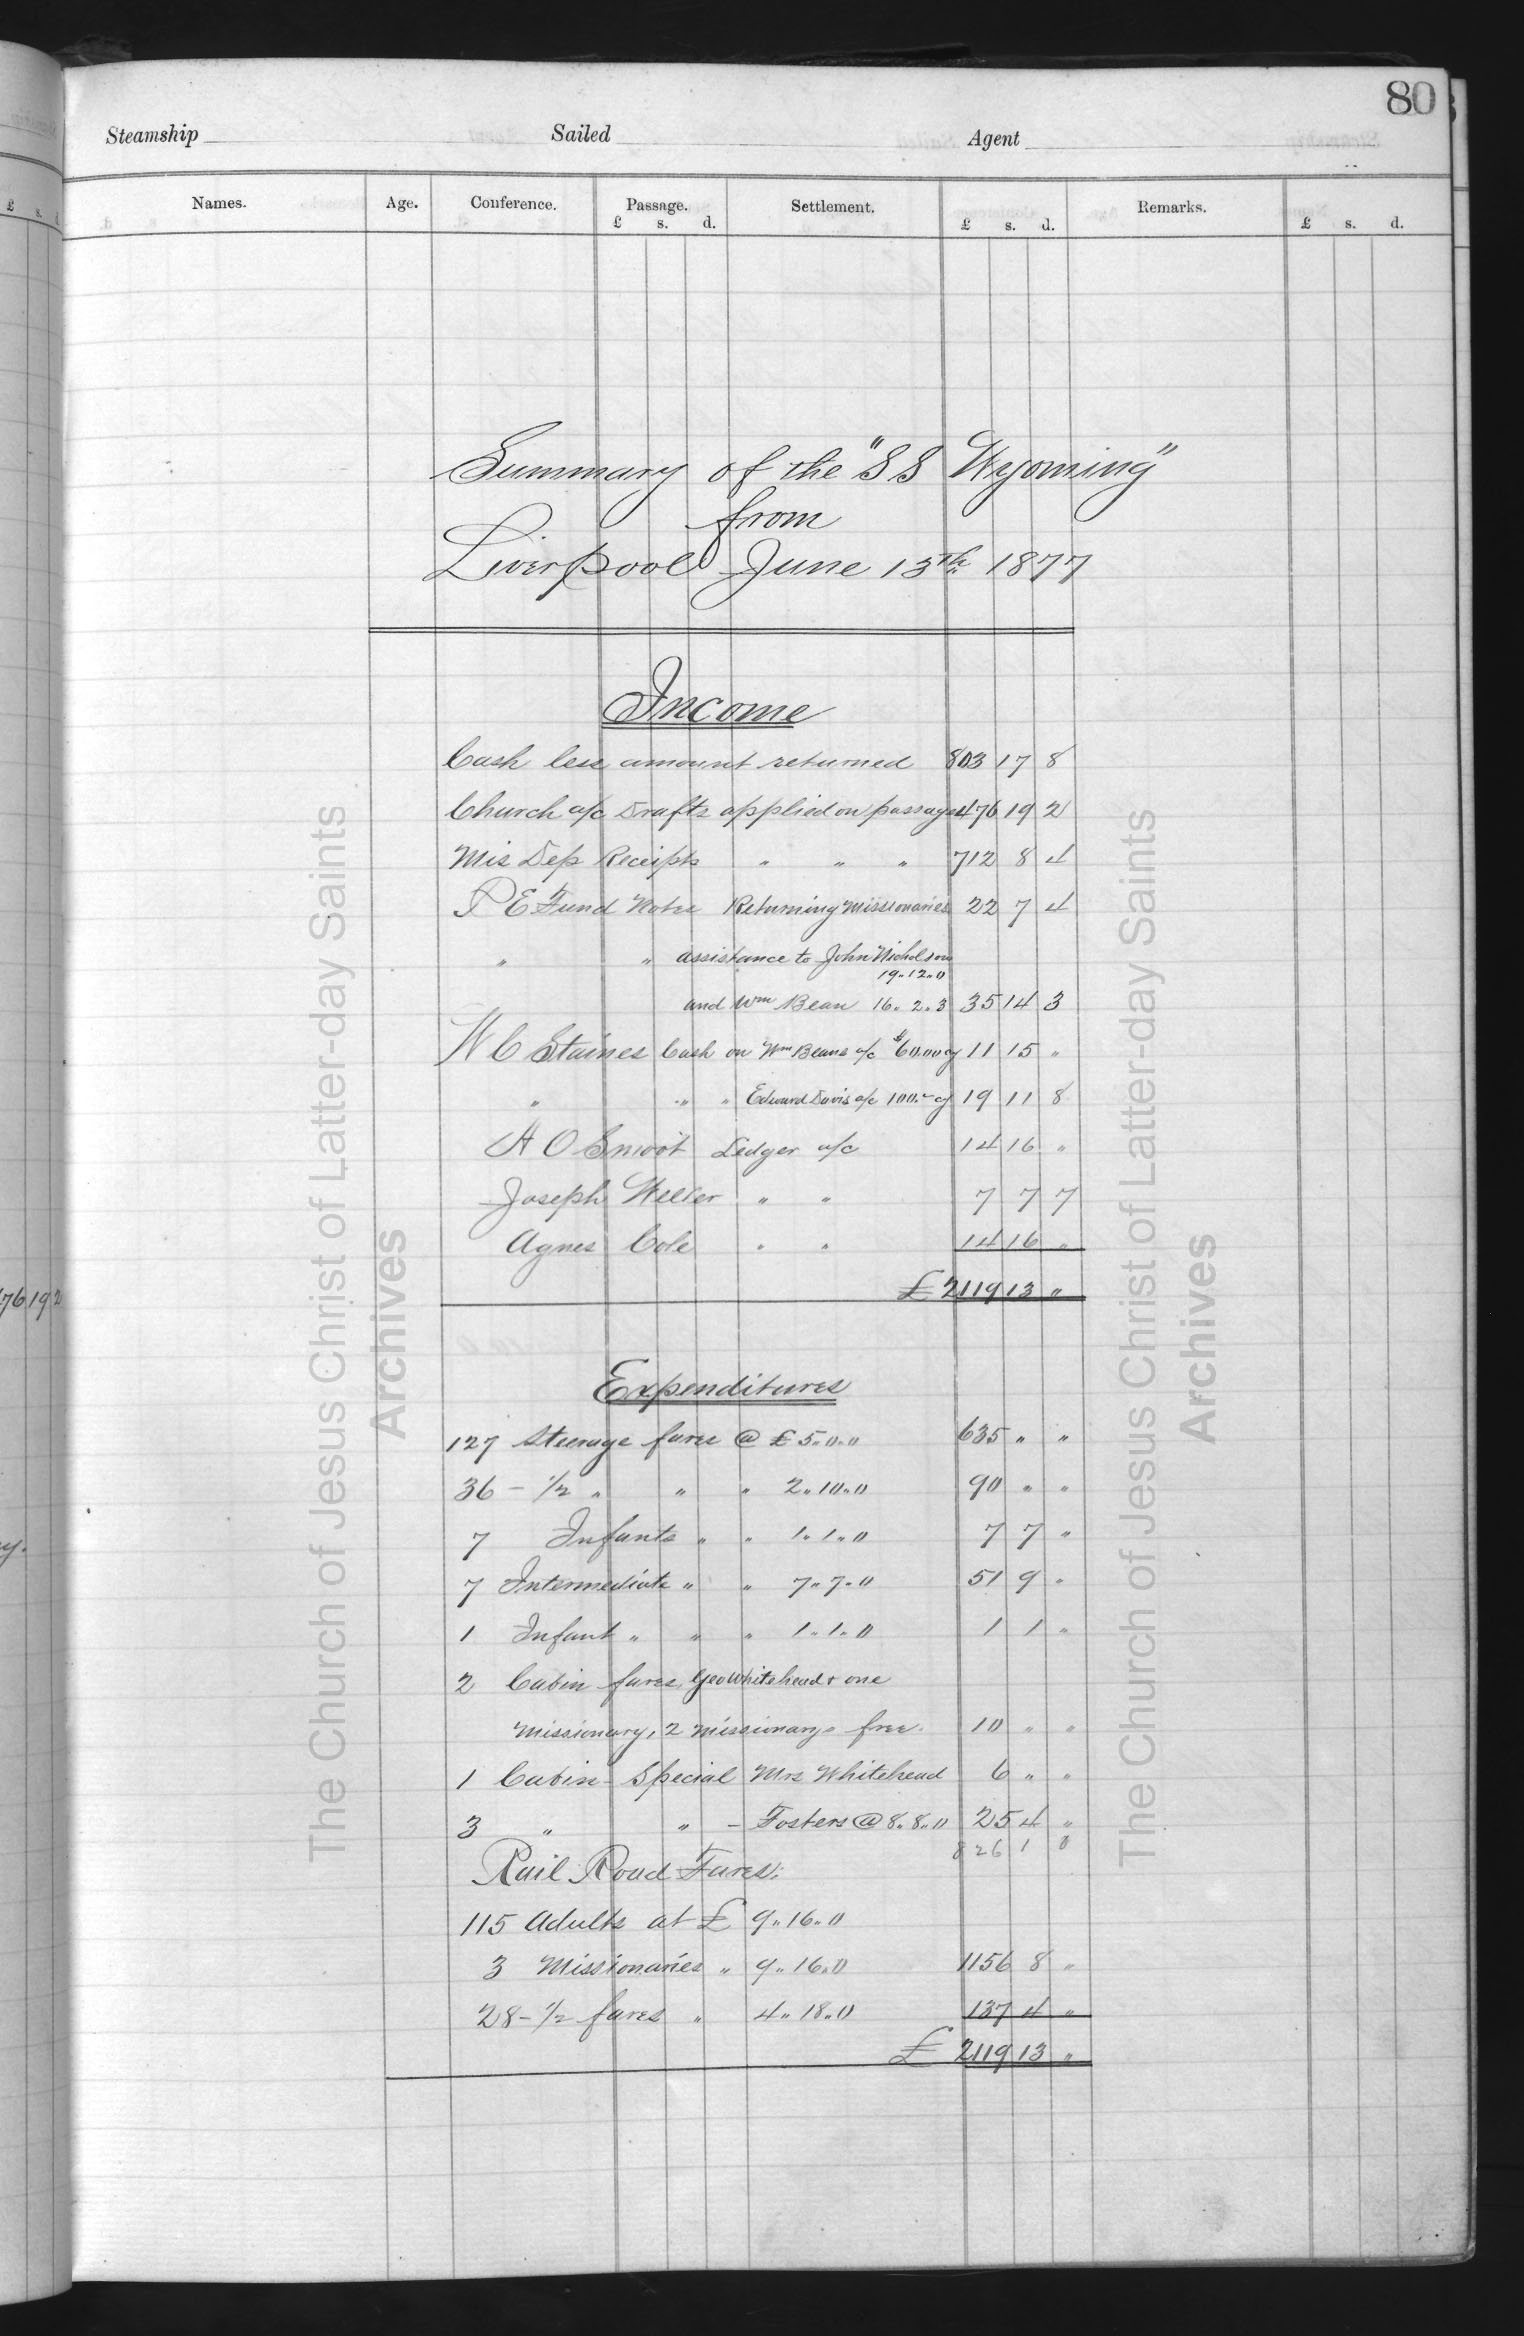 80
Steamship Sailed Agent
Names. Age. Conference. Passage. Settlement. Remarks.
£ s. d. £ s. d. £ s. d.
Summary of the "SS Wyoming"
from
Liverpool June 13th 1877
Income
Cash less amount returned 803 17 8
Church a/c Drafts applied on passage 476 19 2
Mis Dep Receipts " " " 712 8 4
P E Fund Notes Returning Missionaries 22 7 4
" " assistance to John Nicholson
19 " 12 " 0
and Wm Bean 16 " 2 " 3 35 14 3
W C Staines Cash on Wm Beans a/c $60.00 cy 11 15 "
" " " Edward Davis a/c 100.- cy 19 11 8
A O Smoot Ledger a/c 14 16 "
Joseph Weller " " 7 7 7
Agnes Cole " " 14 16 "
£ 2119 13 "
Expenditures
127 Steerage fares @ £ 5 " 0 " 0 635 " "
36 - 1/2 " " " 2 " 10 " 0 90 " "
7 Infants " " 1 " 1 " 0 7 7 "
7 Intermediate " " 7 " 7 " 0 51 9 "
1 Infant " " " 1 " 1 " 0 1 1 "
2 Cabin fares, Geo Whitehead & one
Missionary, 2 missionarys free. 10 " "
1 Cabin - Special Mrs Whitehead 6 " "
3 " " - Fosters @ 8 " 8 " 0 25 4 "
826 1 0
Rail Road Fares.
115 Adults at £ 9 " 16 " 0
3 Missionaries " 9 " 16 " 0 1156 8 "
28 - 1/2 fares " 4 " 18 " 0 137 4 "
£ 2119 13 "
£ s. d.
76 19 2
y.
The Church of Jesus Christ of Latter-day Saints
Archives
The Church of Jesus Christ of Latter-day Saints
Archives